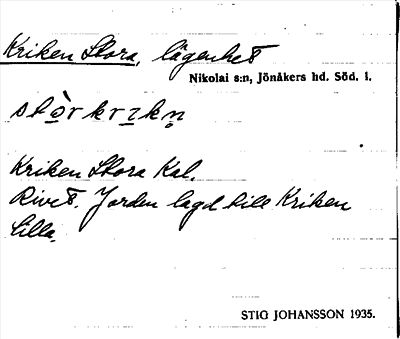 Kriken Stora, lägenhet
Nikolai s:n, Jönåkers hd. Söd. l.
Kriken Stora Kal.
Rivet. Jorden lagd till Kriken
Lilla.
STIG JOHANSSON 1935.